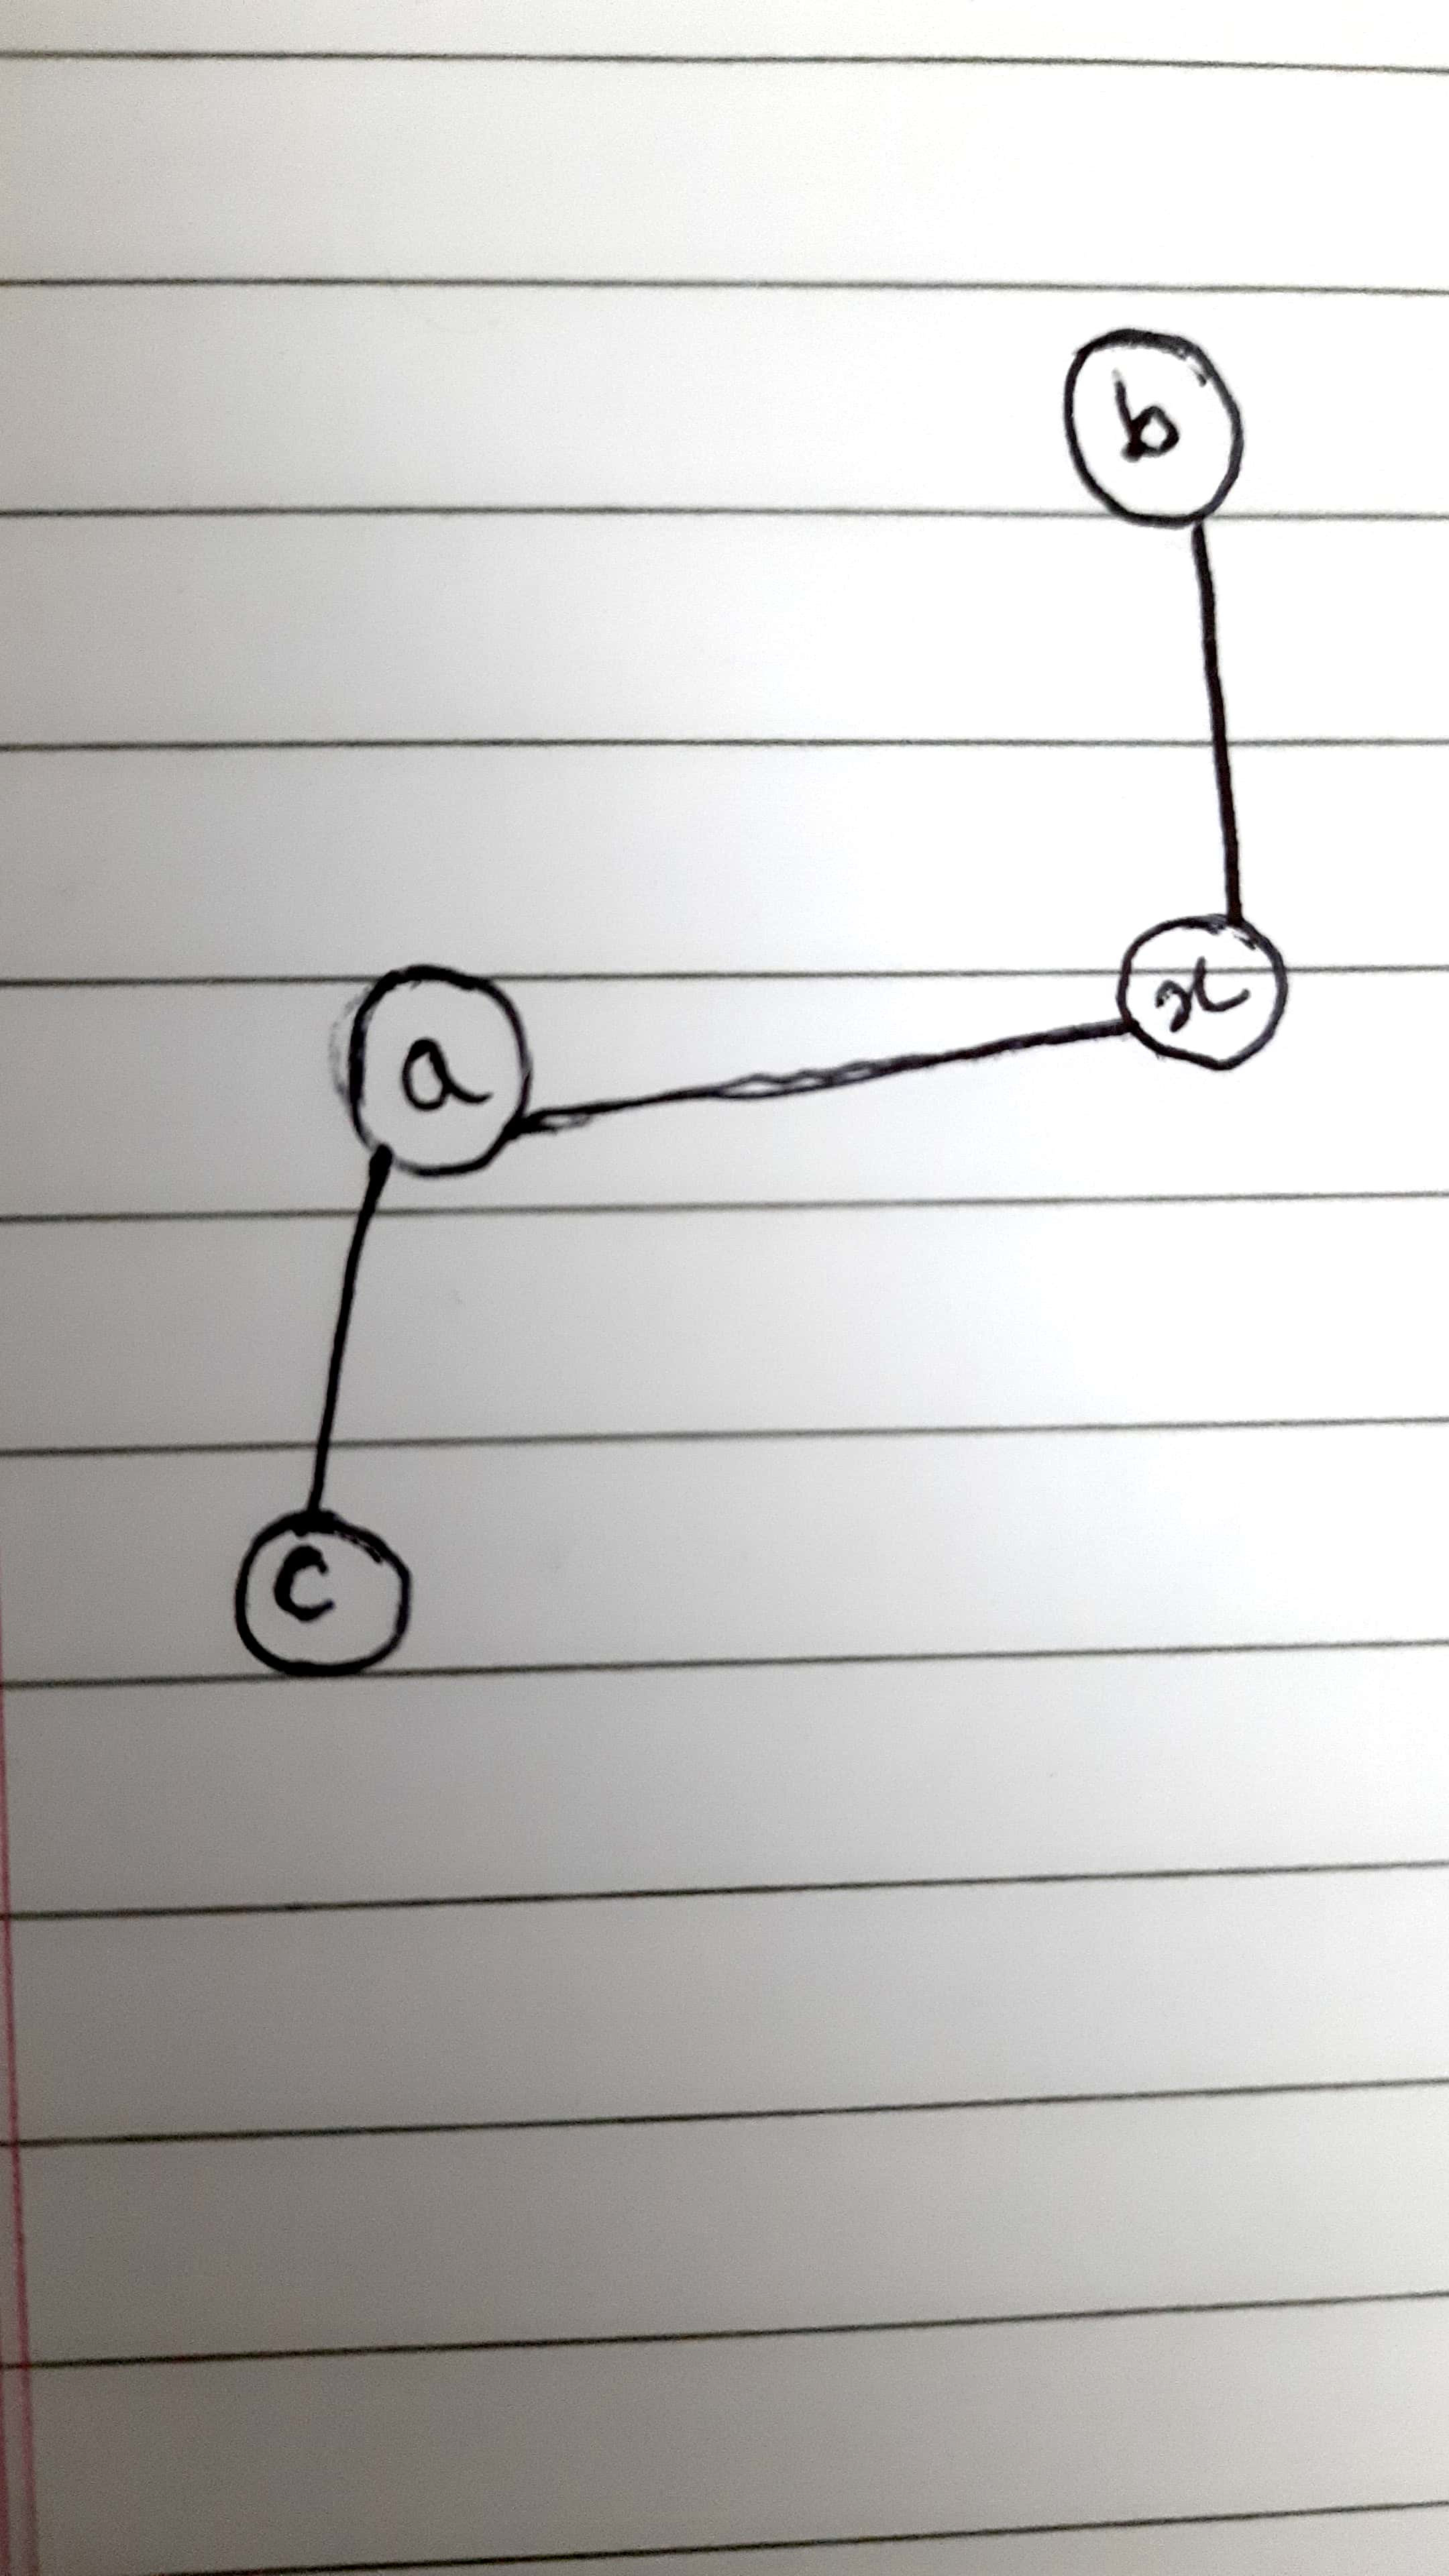 b
x
a
c